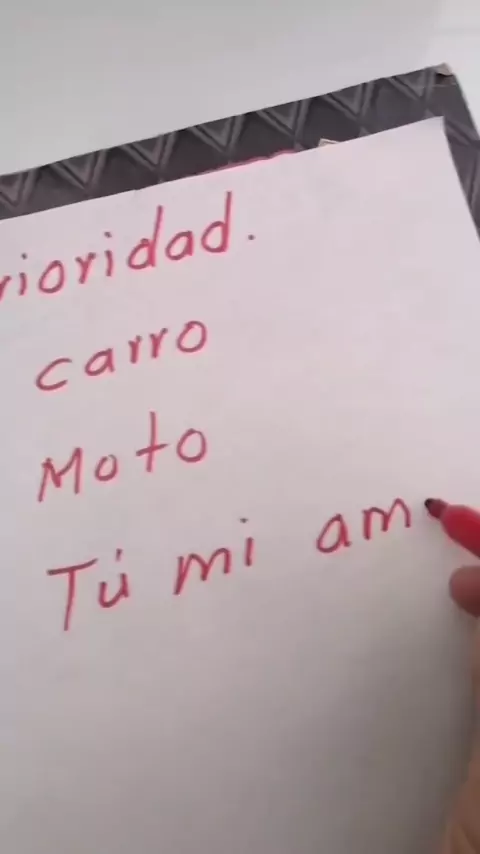 rioridad.
carro
Moto
Tú mi am